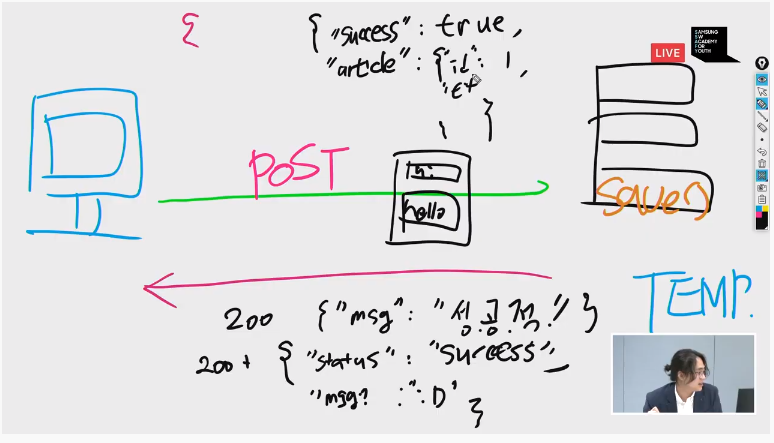 {
{"success": true,
"article": {"id": 1,
}
LIVE
SAMSUNG
SW
ACADEMY
FOR
YOUTH
POST
hi
hello
Saved
TEMP.
200 {"msg": "성공적!!" }
200+ { "status": "success",
"msg? :
}